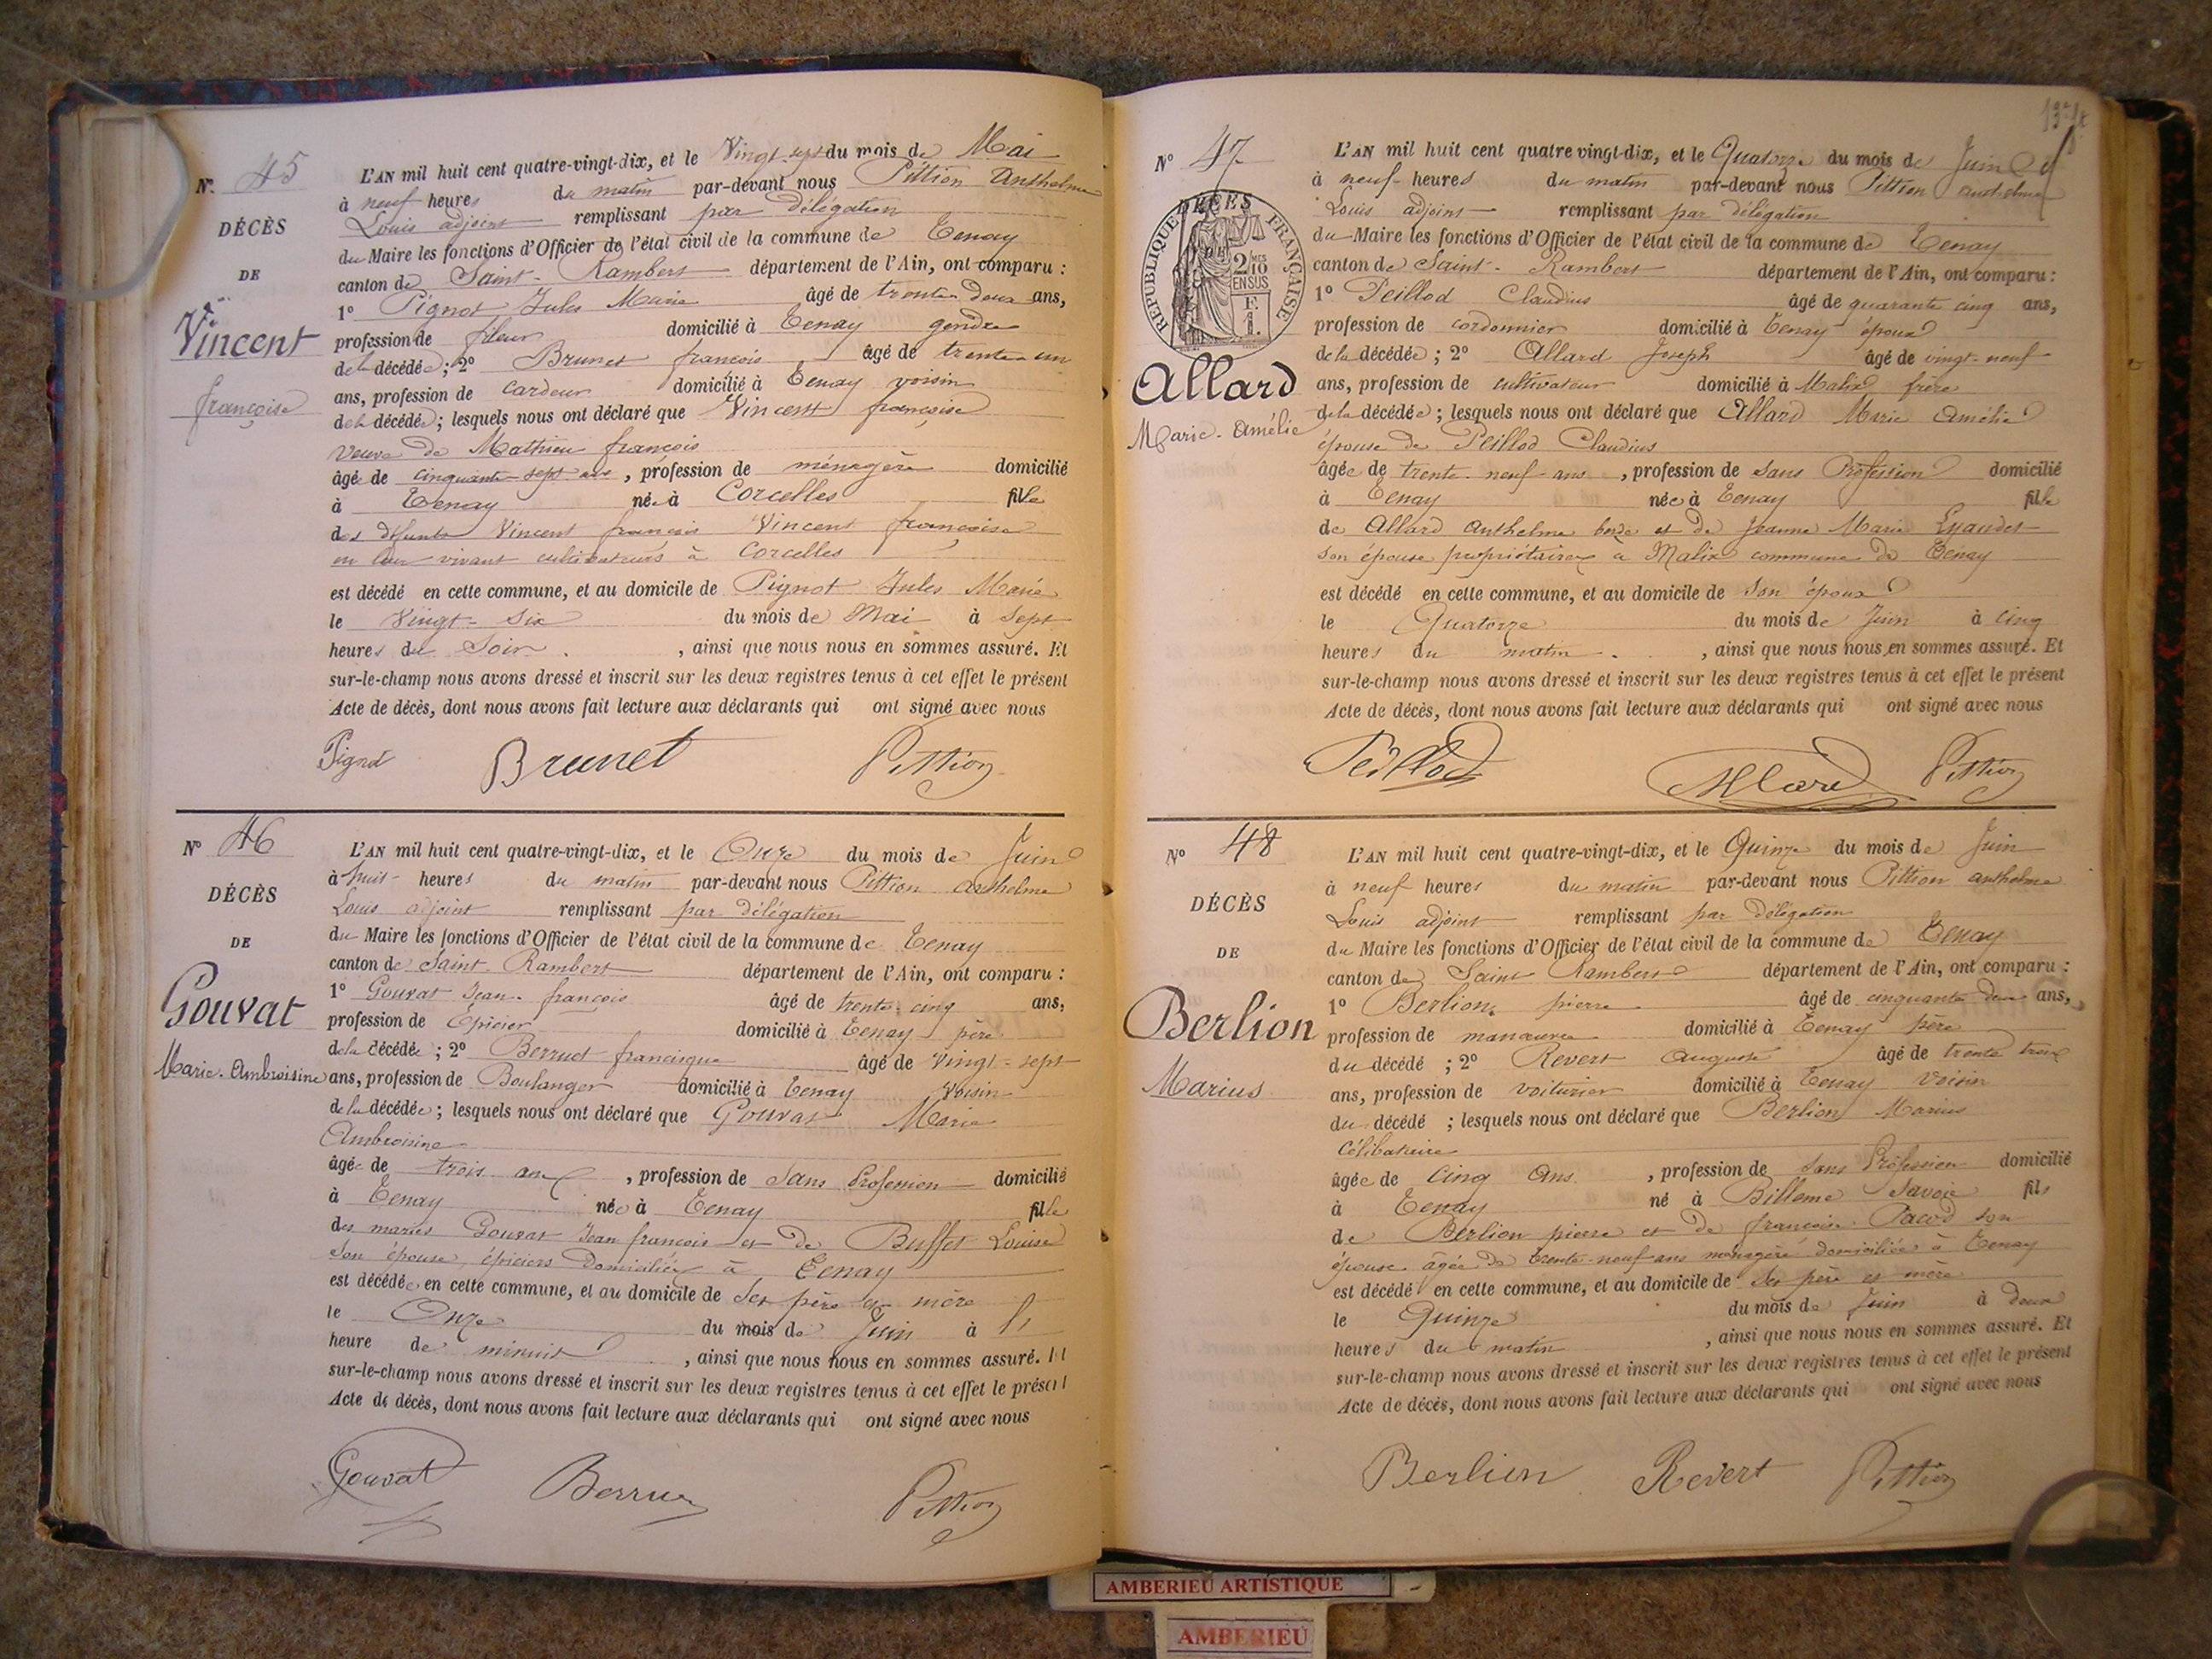 N° 45
DÉCÈS
DE
Vincent
françoise
L'AN mil huit cent quatre-vingt-dix, et le Vingt-sept du mois de Mai
à neuf heures du matin par-devant nous Pittion Anthelme
Louis adjoint remplissant par délégation
du Maire les fonctions d'Officier de l'état civil de la commune de Tenay
canton de Saint-Rambert département de l'Ain, ont comparu :
1° Pignot Jules Marie âgé de trente deux ans,
profession de fileur domicilié à Tenay gendre
de la décédée ; 2° Brunet françois âgé de trente un
ans, profession de cardeur domicilié à Tenay voisin
de la décédée ; lesquels nous ont déclaré que Vincent françoise
Veuve de Mathieu françois
âgé de cinquante-sept ans, profession de ménagère domicilié
à Tenay née à Corcelles fille
des défunts Vincent françois Vincent françoise
en leur vivant cultivateurs à Corcelles
est décédé en cette commune, et au domicile de Pignot Jules Marie
le Vingt-Six du mois de Mai à Sept
heures du Soir. , ainsi que nous nous en sommes assuré. Et
sur-le-champ nous avons dressé et inscrit sur les deux registres tenus à cet effet le présent
Acte de décès, dont nous avons fait lecture aux déclarants qui ont signé avec nous
Pignot Brunet Pittion
N° 46
DÉCÈS
DE
Gouvat
Marie-Ambroisine
L'AN mil huit cent quatre-vingt-dix, et le Onze du mois de Juin
à huit heures du matin par-devant nous Pittion Anthelme
Louis adjoint remplissant par délégation
du Maire les fonctions d'Officier de l'état civil de la commune de Tenay
canton de Saint-Rambert département de l'Ain, ont comparu :
1° Gouvat Jean-françois âgé de trente cinq ans,
profession de Epicier domicilié à Tenay père
de la décédée ; 2° Berrud francisque âgé de Vingt-sept
ans, profession de Boulanger domicilié à Tenay Voisin
de la décédée ; lesquels nous ont déclaré que Gouvat Marie
Ambroisine
âgée de trois ans, profession de Sans Profession domicilié
à Tenay née à Tenay fille
des mariés Gouvat Jean françois et de Buffet Louise
Son épouse, épiciers Domiciliés à Tenay
est décédée en cette commune, et au domicile de Ses père et mère
le Onze du mois de Juin à l'
heure de minuit , ainsi que nous nous en sommes assuré. Et
sur-le-champ nous avons dressé et inscrit sur les deux registres tenus à cet effet le présent
Acte de décès, dont nous avons fait lecture aux déclarants qui ont signé avec nous
Gouvat Pittion
N° 47
RÉPUBLIQUE FRANÇAISE
2/10 MES
EN SUS
Allard
Marie-Amélie
L'AN mil huit cent quatre vingt-dix, et le Quatorze du mois de Juin
à neuf heures du matin par-devant nous Pittion anthelme
Louis adjoint remplissant par délégation
du Maire les fonctions d'Officier de l'état civil de la commune de Tenay
canton de Saint-Rambert département de l'Ain, ont comparu :
1° Peillod Claudius âgé de quarante cinq ans,
profession de cordonnier domicilié à Tenay époux
de la décédée ; 2° Allard Joseph âgé de vingt-neuf
ans, profession de cultivateur domicilié à Malix frère
de la décédée ; lesquels nous ont déclaré que Allard Marie Amélie
épouse de Peillod Claudius
âgée de trente-neuf ans, profession de Sans Profession domicilié
à Tenay née à Tenay fille
de Allard Anthelme et de Jeanne Marie
Son épouse propriétaires à Malix commune de Tenay
est décédé en cette commune, et au domicile de Son époux
le Quatorze du mois de Juin à Cinq
heures du matin. , ainsi que nous nous en sommes assuré. Et
sur-le-champ nous avons dressé et inscrit sur les deux registres tenus à cet effet le présent
Acte de décès, dont nous avons fait lecture aux déclarants qui ont signé avec nous
Peillod Allard Pittion
N° 48
DÉCÈS
DE
Berlion
Marius
L'AN mil huit cent quatre-vingt-dix, et le Quinze du mois de Juin
à neuf heures du matin par-devant nous Pittion anthelme
Louis adjoint remplissant par délégation
du Maire les fonctions d'Officier de l'état civil de la commune de Tenay
canton de Saint Rambert département de l'Ain, ont comparu :
1° Berlion pierre âgé de cinquante deux ans,
profession de manœuvre domicilié à Tenay père
du décédé ; 2° Revert Auguste âgé de trente trois
ans, profession de voiturier domicilié à Tenay Voisin
du décédé ; lesquels nous ont déclaré que Berlion Marius
Célibataire
âgée de Cinq Ans, profession de Sans Profession domicilié
à Tenay né à Billeme Savoie fils
de Berlion pierre et de françoise Pacod son
épouse âgée de trente-neuf ans ménagère domiciliés à Tenay
est décédé en cette commune, et au domicile de Ses père et mère
le Quinze du mois de Juin à Deux
heures du matin , ainsi que nous nous en sommes assuré. Et
sur-le-champ nous avons dressé et inscrit sur les deux registres tenus à cet effet le présent
Acte de décès, dont nous avons fait lecture aux déclarants qui ont signé avec nous
Berlion Revert Pittion
AMBERIEU ARTISTIQUE
AMBERIEU